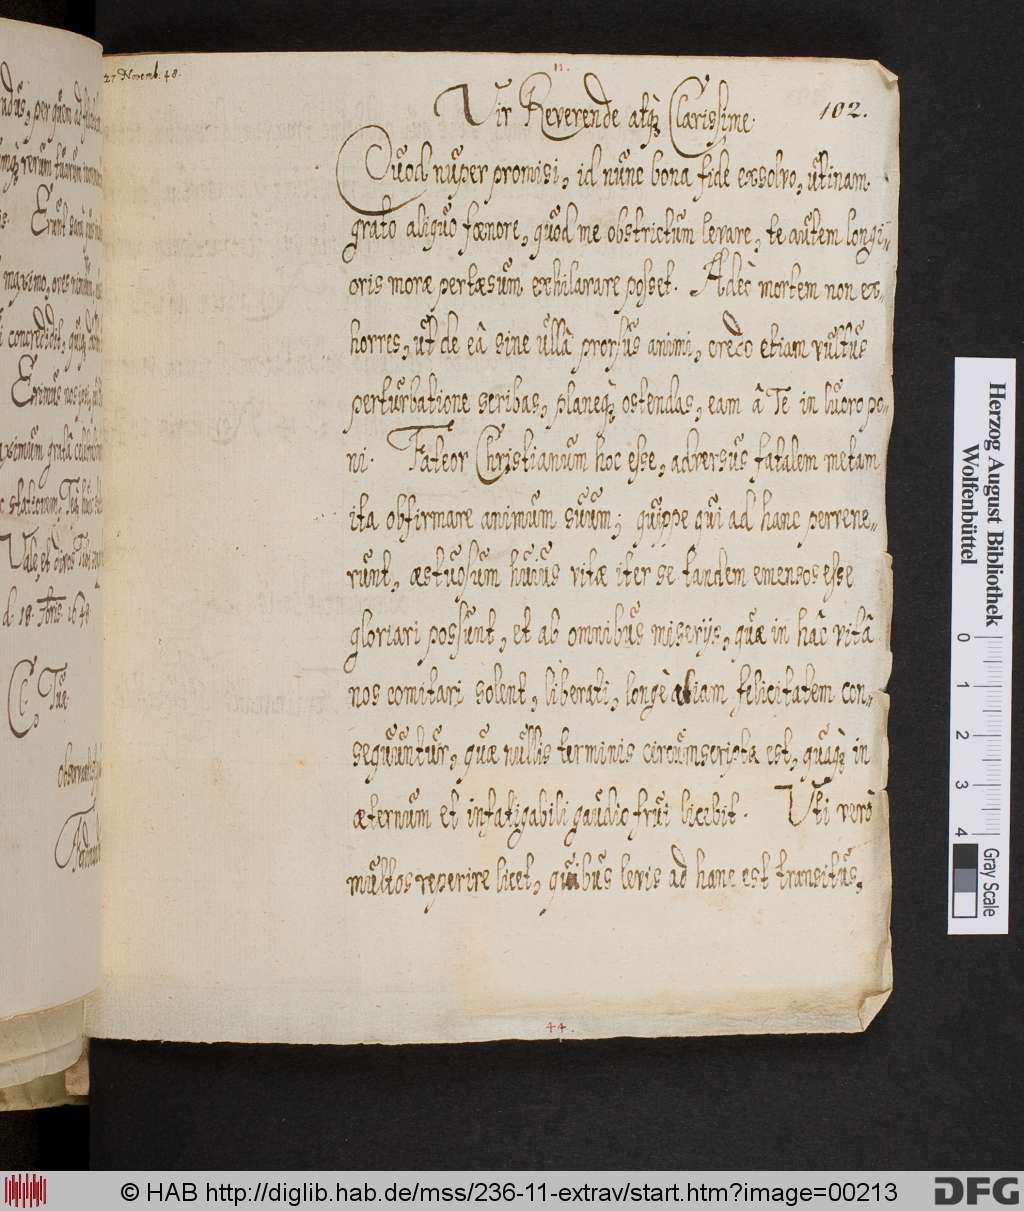 ndus, per quem ad
rerum tuarum
Erunt
maximo,
concredidit,
Erimus nos
gratâ
stationem,
Vale, et
d. 18. 1648
C. Tuæ
27 Novemb: 48.
11.
102.
Vir Reverende atq; Clarissime.
Quod nuper promisi, id nunc bona fide exsolvo, utinam
grato aliquo fœnore, quod me obstrictum levare, te autem longi-
oris moræ pertæsum exhilarare posset. Adeò mortem non ex-
horres, ut de eâ sine ullâ prorsus animi, credo etiam vultus
perturbatione scribas, planeq; ostendas, eam â Te in lucro po-
ni. Fateor Christianum hoc esse, adversus fatalem metam
ita obfirmare animum suum; quippe qui ad hanc pervene-
runt, æstuosum huius vitæ iter se tandem emensos esse
gloriari possunt, et ab omnibus miserijs, quæ in hâc vitâ
nos comitari solent, liberati, longè aliam felicitatem con-
sequuntur, quæ nullis terminis circumscripta est, quaq; in
æternum et infatigabili gaudio frui licebit. Uti verò
multos reperire licet, quibus levis ad hanc est transitus,
44.
Herzog August Bibliothek
Wolfenbüttel
0 1 2 3 4
Gray Scale
© HAB http://diglib.hab.de/mss/236-11-extrav/start.htm?image=00213
DFG